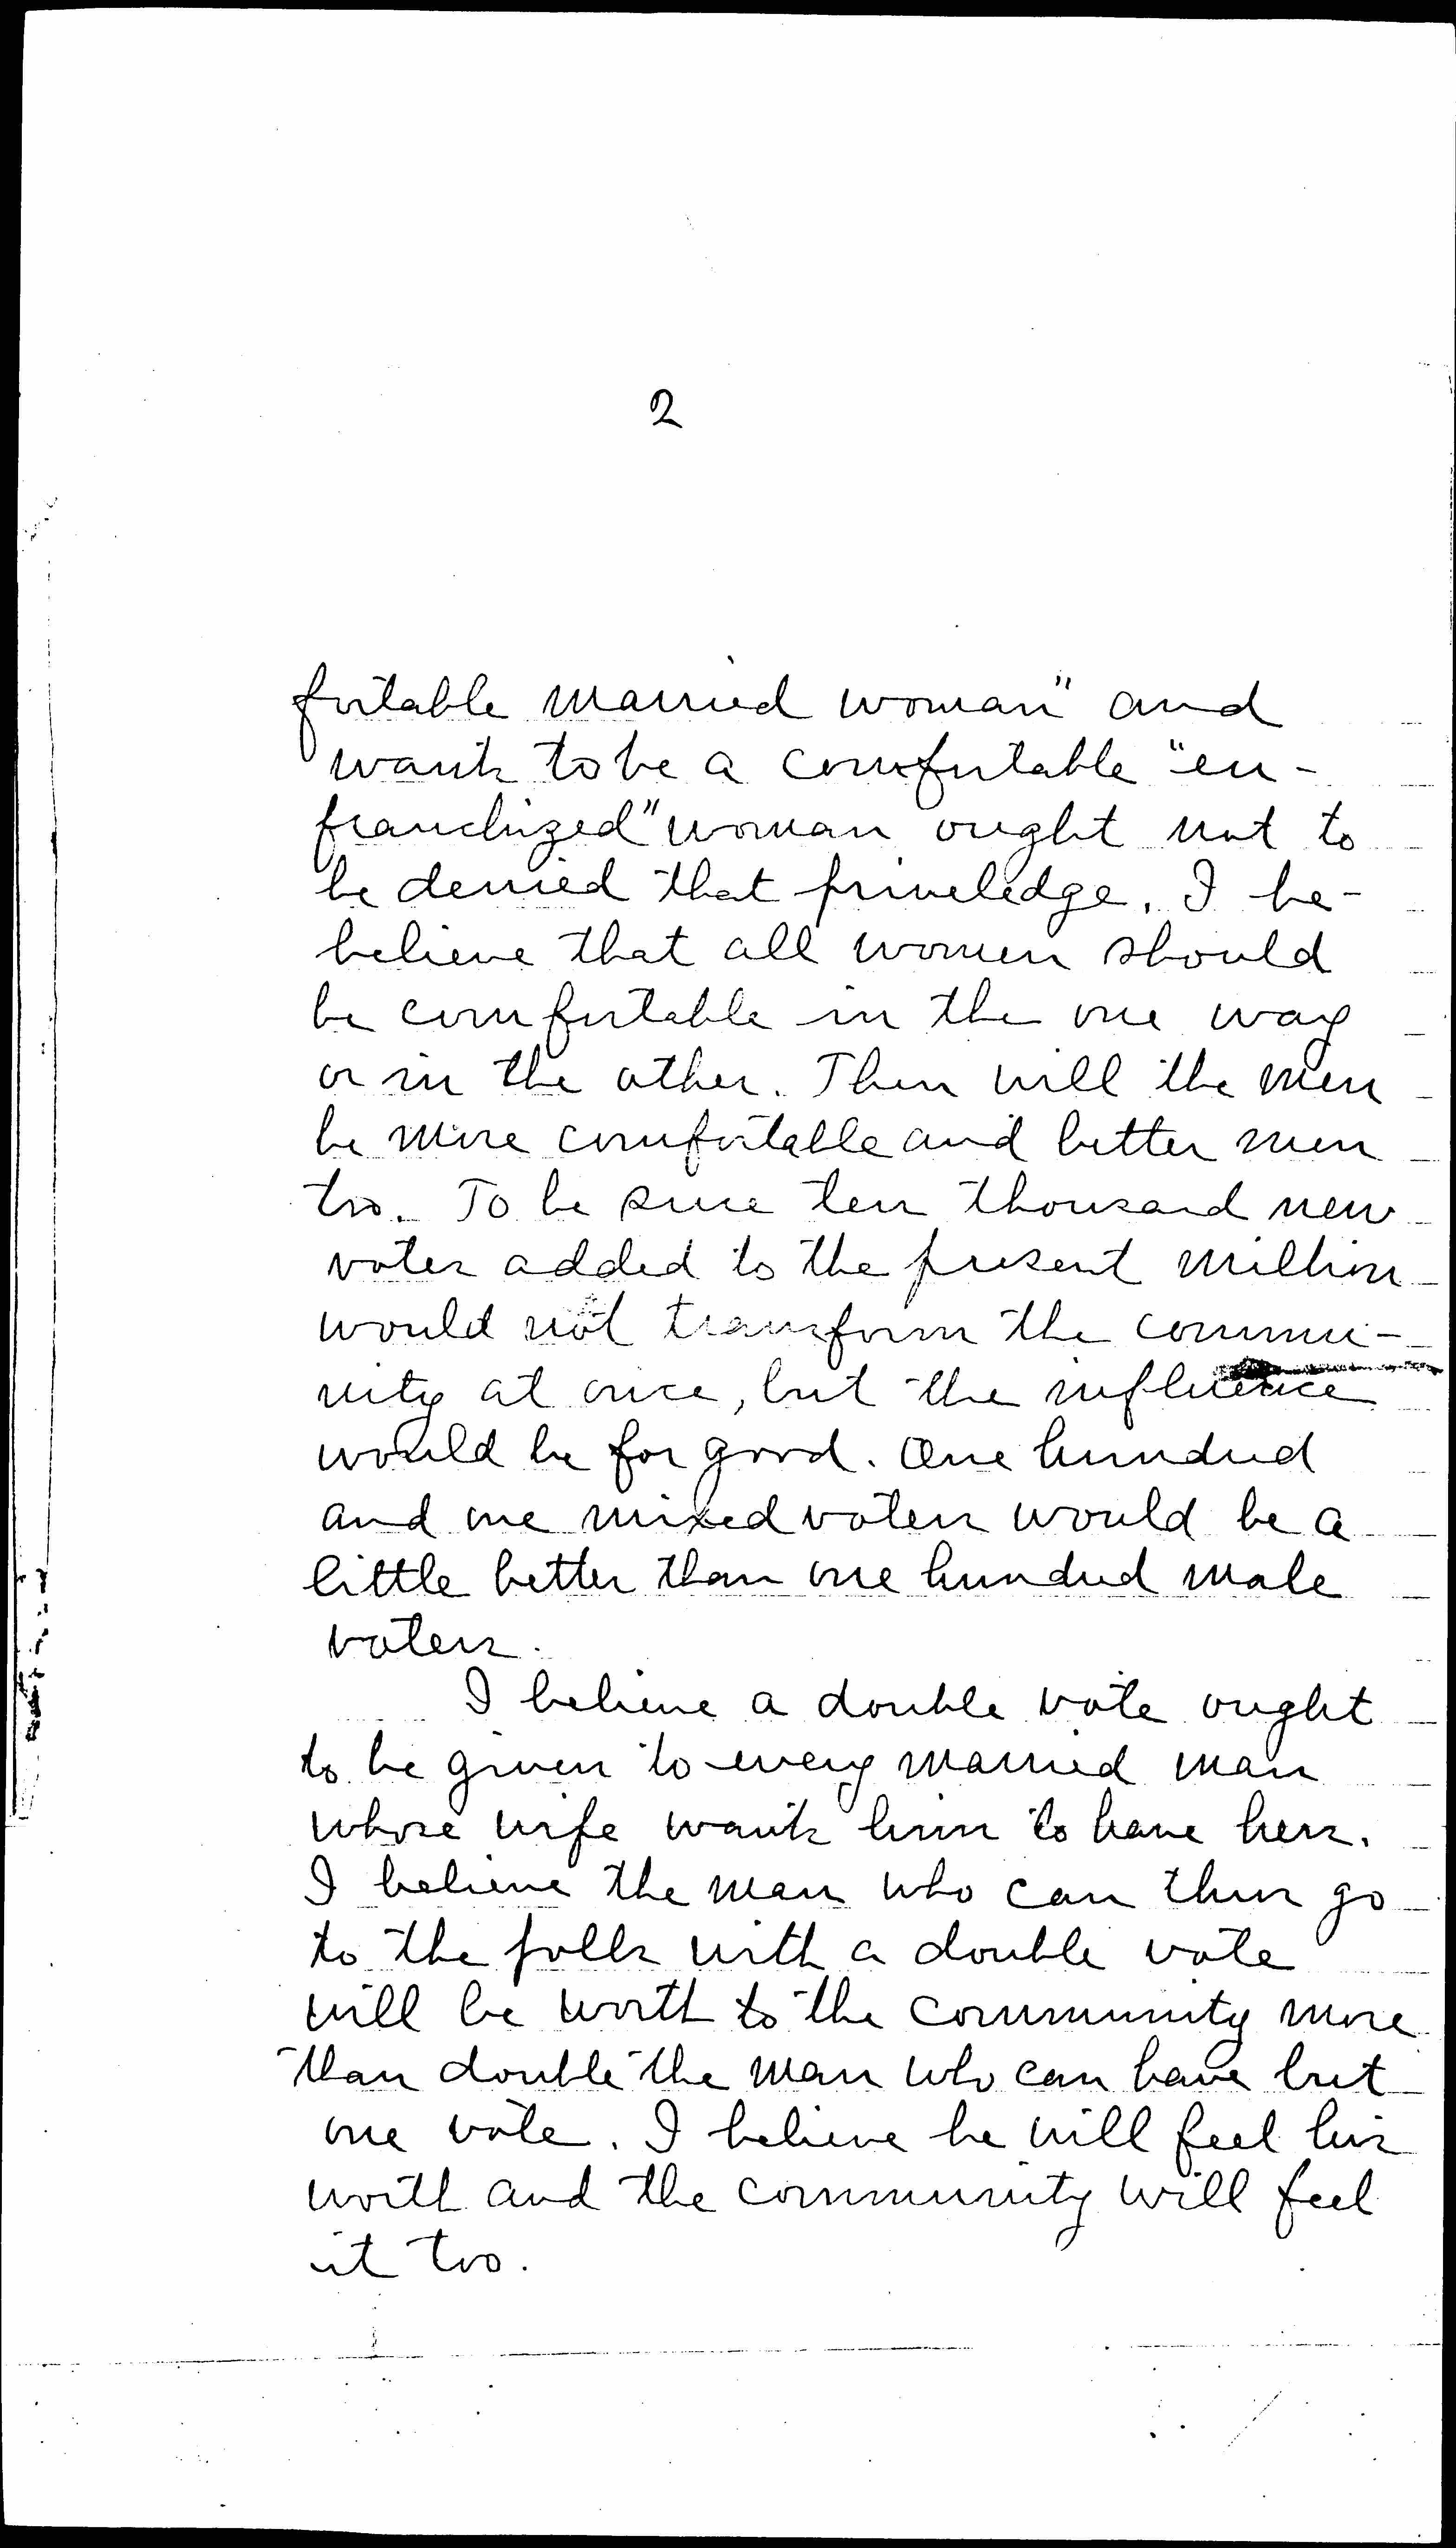 2
fortable married woman" and
wants to be a comfortable "en-
franchized" woman ought not to
be denied that priveledge. I be-
believe that all women should
be comfortable in the one way
or in the other. Then will the men
be more comfortable and better men
too. To be sure ten thousand new
votes added to the present million
would not transform the commu-
nity at once, but the influence
would be for good. One hundred
and one mixed voters would be a
little better than one hundred male
voters.
I believe a double vote ought
to be given to every married man
whose wife wants him to have hers.
I believe the man who can thus go
to the polls with a double vote
will be worth to the community more
than double the man who can have but
one vote. I believe he will feel his
worth and the community will feel
it too.